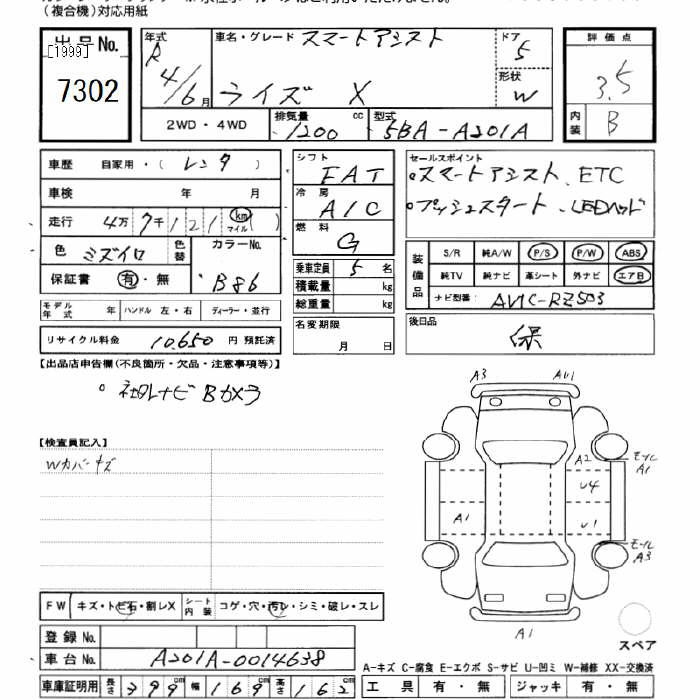 (複合機)対応用紙
出品No.
[1999]
7302
年式 R 4/6月
車名・グレード スマートアシスト
ライズ X
ドア 5
形状 W
2WD・4WD
排気量 1200 cc
型式 5BA-A201A
評価点 3.5
内装 B
車歴 自家用・(レンタ)
車検 年 月
走行 4万7千121 km マイル ( )
色 ミズイロ 色替
カラーNo. B86
保証書 有・無
モデル年式 年 ハンドル 左・右 ディーラー・並行
リサイクル料金 10,650 円 預託済
シフト FAT
冷房 A/C
燃料 G
乗車定員 5 名
積載量 kg
総重量 kg
名変期限 月 日
セールスポイント
・スマートアシスト、ETC
・プッシュスタート、LEDヘッド
装備品 S/R 純A/W P/S P/W ABS
純TV 純ナビ 革シート 外ナビ エアB
ナビ型番: AVIC-RZ503
後日品 保
【出品店申告欄(不良箇所・欠品・注意事項等)】
。社外ナビ Bカメラ
【検査員記入】
Wカバーキズ
FW キズ・トビ石・割レX
シート内装 コゲ・穴・汚レ・シミ・破レ・スレ
登録No.
車台No. A201A-0014638
車庫証明用 長さ 399cm 幅 169cm 高さ 162cm
A3
AU1
A2
モール A1
U4
A1
U1
モール A3
A1
スペア
A-キズ C-腐食 E-エクボ S-サビ U-凹ミ W-補修 XX-交換済
工具 有・無 ジャッキ 有・無